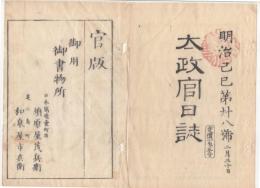 明治己巳第廿八號
二月三十日
太政官日誌
官版
御用
御書物所
須原屋茂兵衛
和泉屋市兵衛